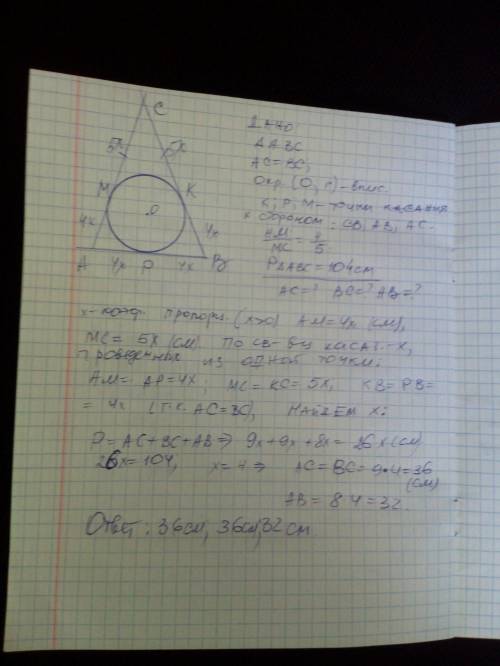 C
5x
5x
M
K
O
4x
4x
A
4x
P
4x
B
Дано
△ABC
AC=BC,
Окр. (O, r) - впис.
K, P, M - точки касания
к сторонам: CB, AB, AC.
AM/MC = 4/5
P△ABC = 104 см
AC=? BC=? AB=?
x - коэф. пропорц. (x>0) AM=4x (см),
MC= 5x (см) по св-ву касат.-х,
проведённых из одной точки:
AM= AP=4x; MC=KC=5x, KB=PB=
= 4x (т.к. AC=BC), Найдём x:
P=AC+BC+AB⇒ 9x+9x+8x=26x(см)
26x=104, x=4 ⇒ AC=BC=9·4=36
(см)
AB = 8·4=32.
Ответ: 36см, 36см, 32см.